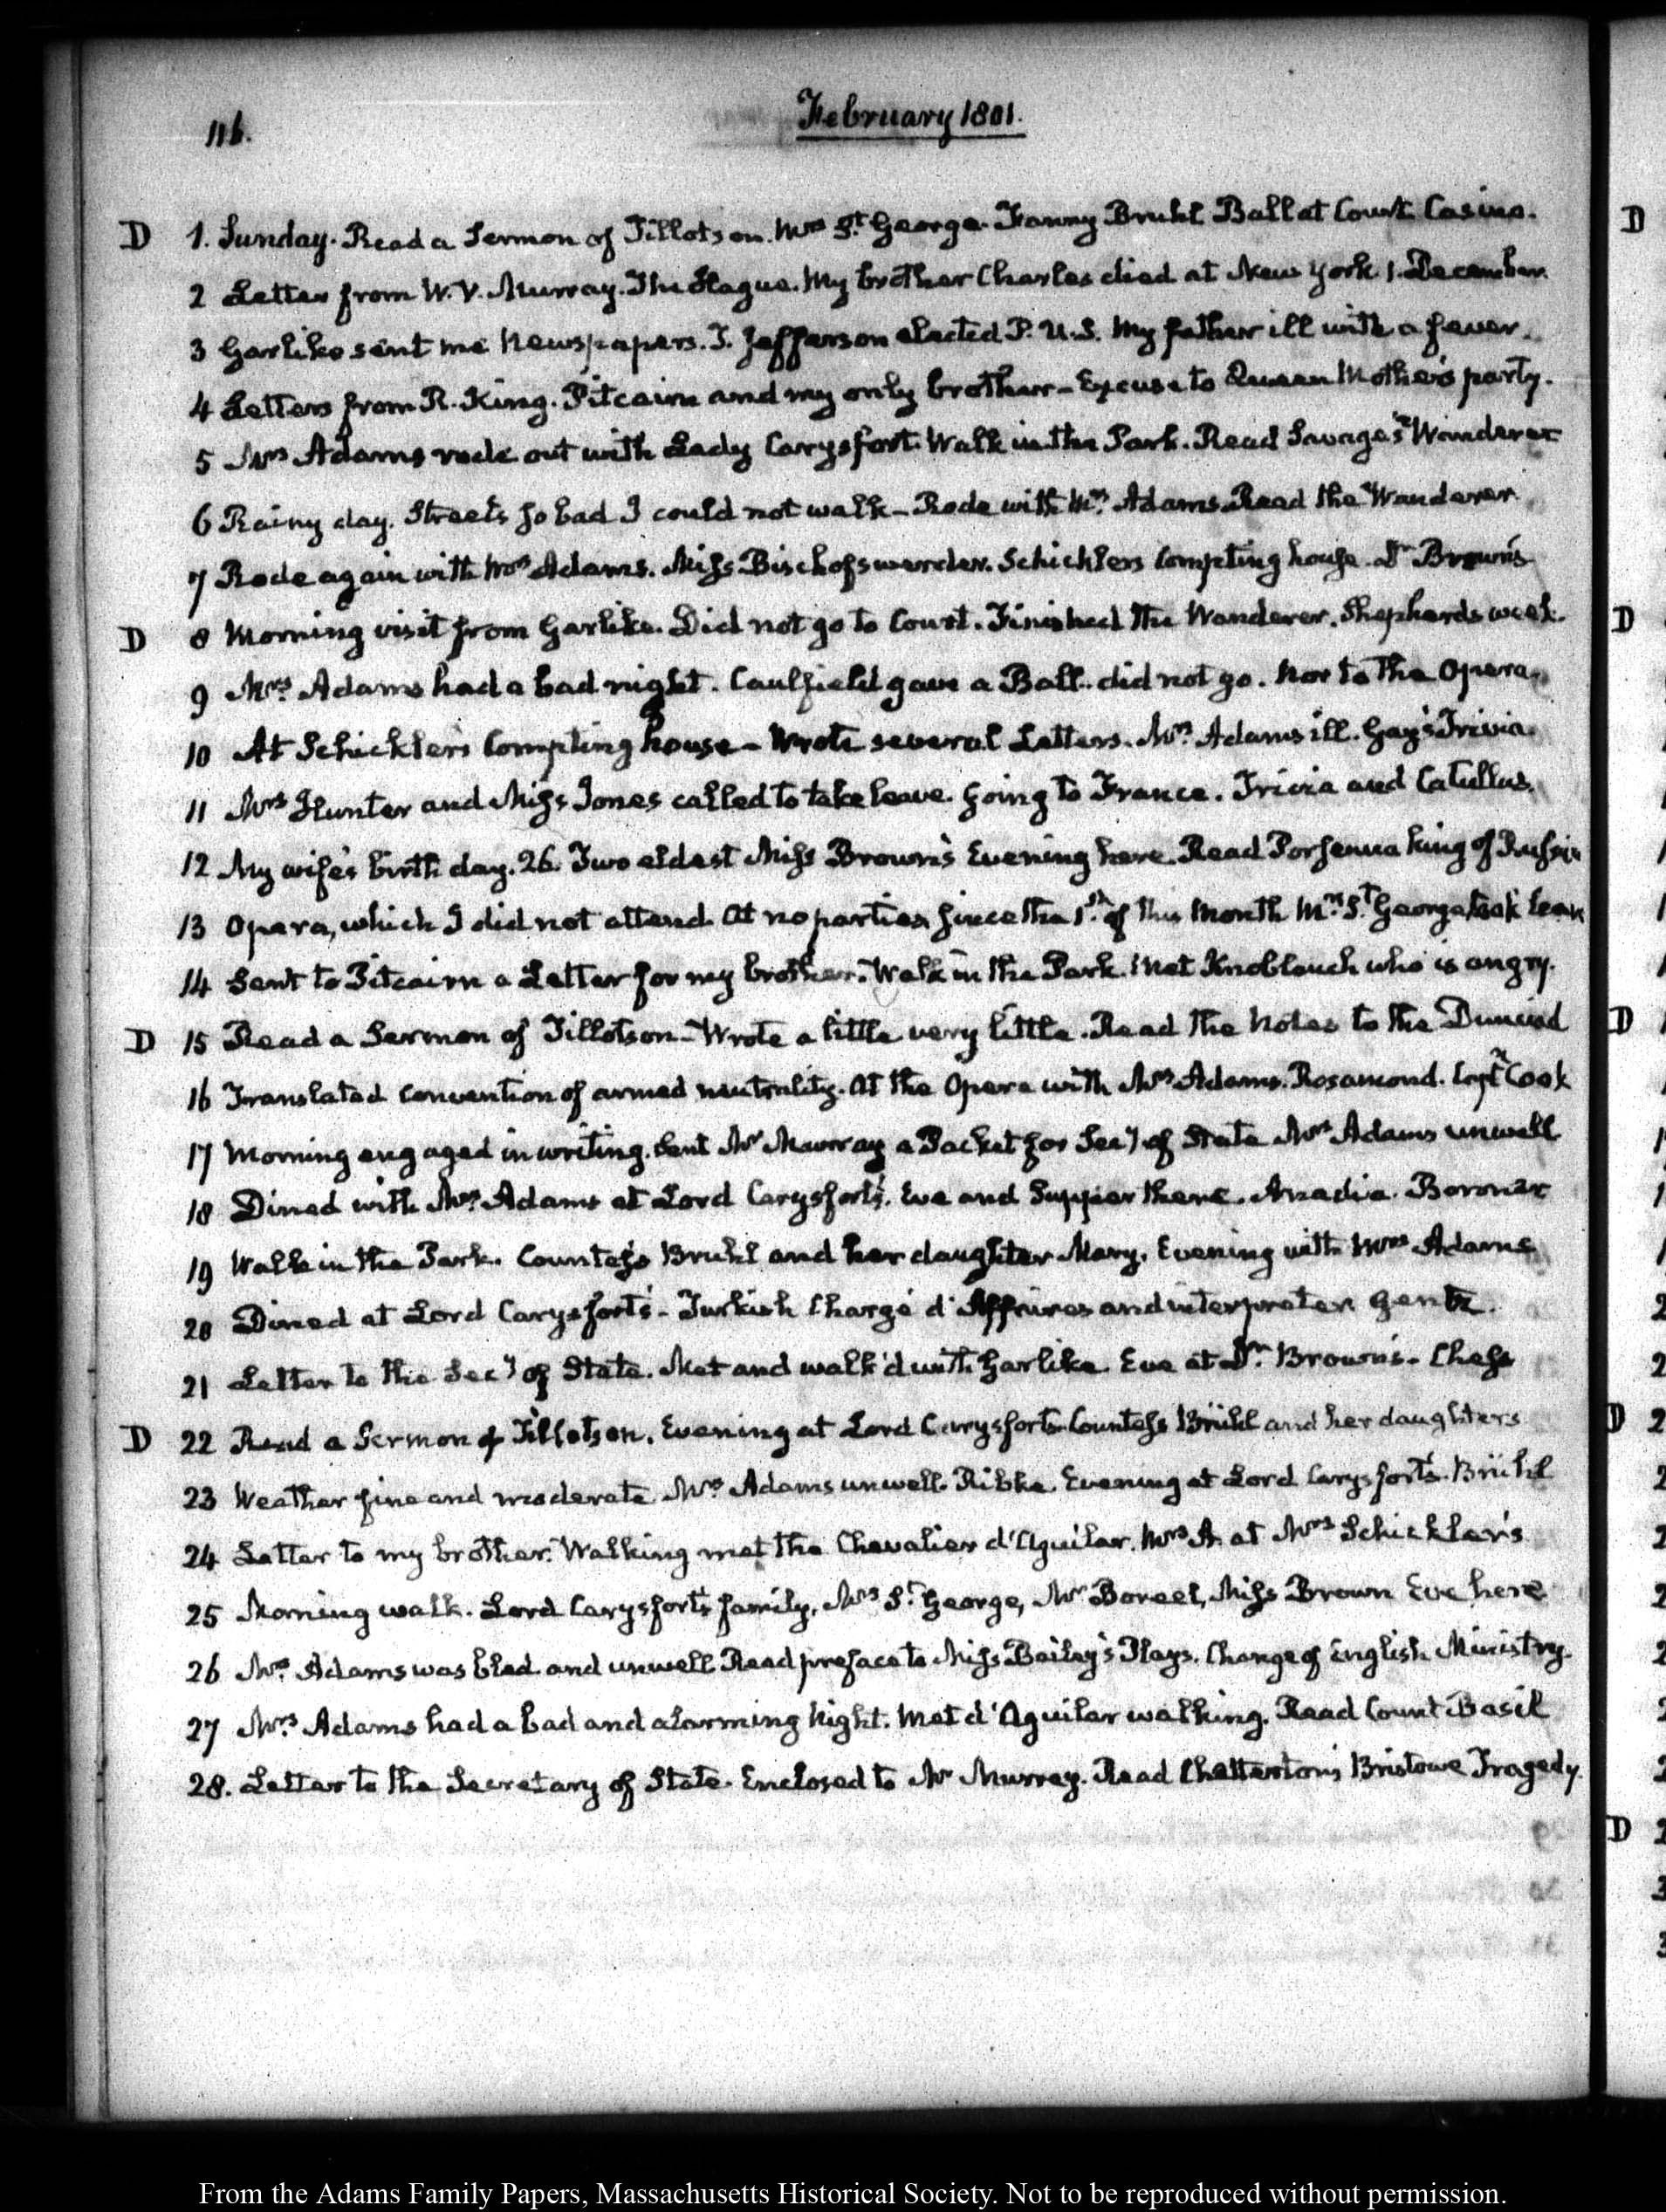 116.
February 1801.
D 1. Sunday. Read a Sermon of Tillotson. Mrs St. George. Fanny Bruhl Ball at Court Casino.
2 Letter from W. V. Murray. The Hague. My brother Charles died at New York 1. December.
3 Garlike sent me Newspapers. T. Jefferson elected P. U.S. My father ill with a fever.
4 Letters from R. King. Pitcairn and my only brother — Excuse to Queen Mother's party.
5 Mrs Adams rode out with Lady Carysfort. Walk in the Park. Read Savage's Wanderer
6 Rainy day. Streets so bad I could not walk — Rode with Mrs. Adams. Read the Wanderer.
7 Rode again with Mrs Adams. Miss Bischofswerder. Schicklers Compting house. Dr Brown's
D 8 Morning visit from Garlike. Did not go to Court. Finished the Wanderer. Shepherds week.
9 Mrs. Adams had a bad night. Caulfield gave a Ball. did not go. Nor to the Opera.
10 At Schickler's Compting house — Wrote several Letters. Mrs. Adams ill. Gay's Trivia.
11 Mrs Hunter and Miss Jones called to take leave. Going to France. Trivia and Catullus.
12 My wife's birth day. 26. Two eldest Miss Brown's Evening here. Read Porsenna King of Russia
13 Opera, which I did not attend. At no parties since the 1st. of this Month Mrs St George took leave
14 Sent to Pitcairn a Letter for my brother. Walk in the Park. Met Knoblauch who is angry.
D 15 Read a Sermon of Tillotson — Wrote a little very little. Read the Notes to the Dunciad
16 Translated Convention of armed neutrality. At the Opera with Mrs Adams. Rosamond. Captn Cook
17 Morning engaged in writing. Sent Mr Murray a Packet for Secy of State Mrs Adams unwell
18 Dined with Mrs. Adams at Lord Carysfort's. Eve and Supper there. Anadia.
19 Walk in the Park. Countess Bruhl and her daughter Mary. Evening with Mrs Adams
20 Dined at Lord Carysfort's — Turkish Chargé d'Affaires and interpreter. Gentz.
21 Letter to the Secy of State. Met and walk'd with Garlike. Eve at Dr. Brown's — Chess
D 22 Read a Sermon of Tillotson. Evening at Lord Carysforts. Countess Brühl and her daughters
23 Weather fine and moderate Mrs. Adams unwell. Ribke. Evening at Lord Carysfort's. Brühl
24 Letter to my brother. Walking met the Chevalier d'Aguilar. Mrs A. at Mrs Schickler's
25 Morning walk. Lord Carysfort's family, Mrs St. George, Mr Boreel, Miss Brown Eve here
26 Mrs. Adams was bled and unwell Read preface to Miss Bailey's Plays. Change of English Ministry.
27 Mrs. Adams had a bad and alarming Night. Met d'Aguilar walking. Read Count Basil
28. Letter to the Secretary of State. Enclosed to Mr Murray. Read Chatterton's Bristowe Tragedy.
From the Adams Family Papers, Massachusetts Historical Society. Not to be reproduced without permission.